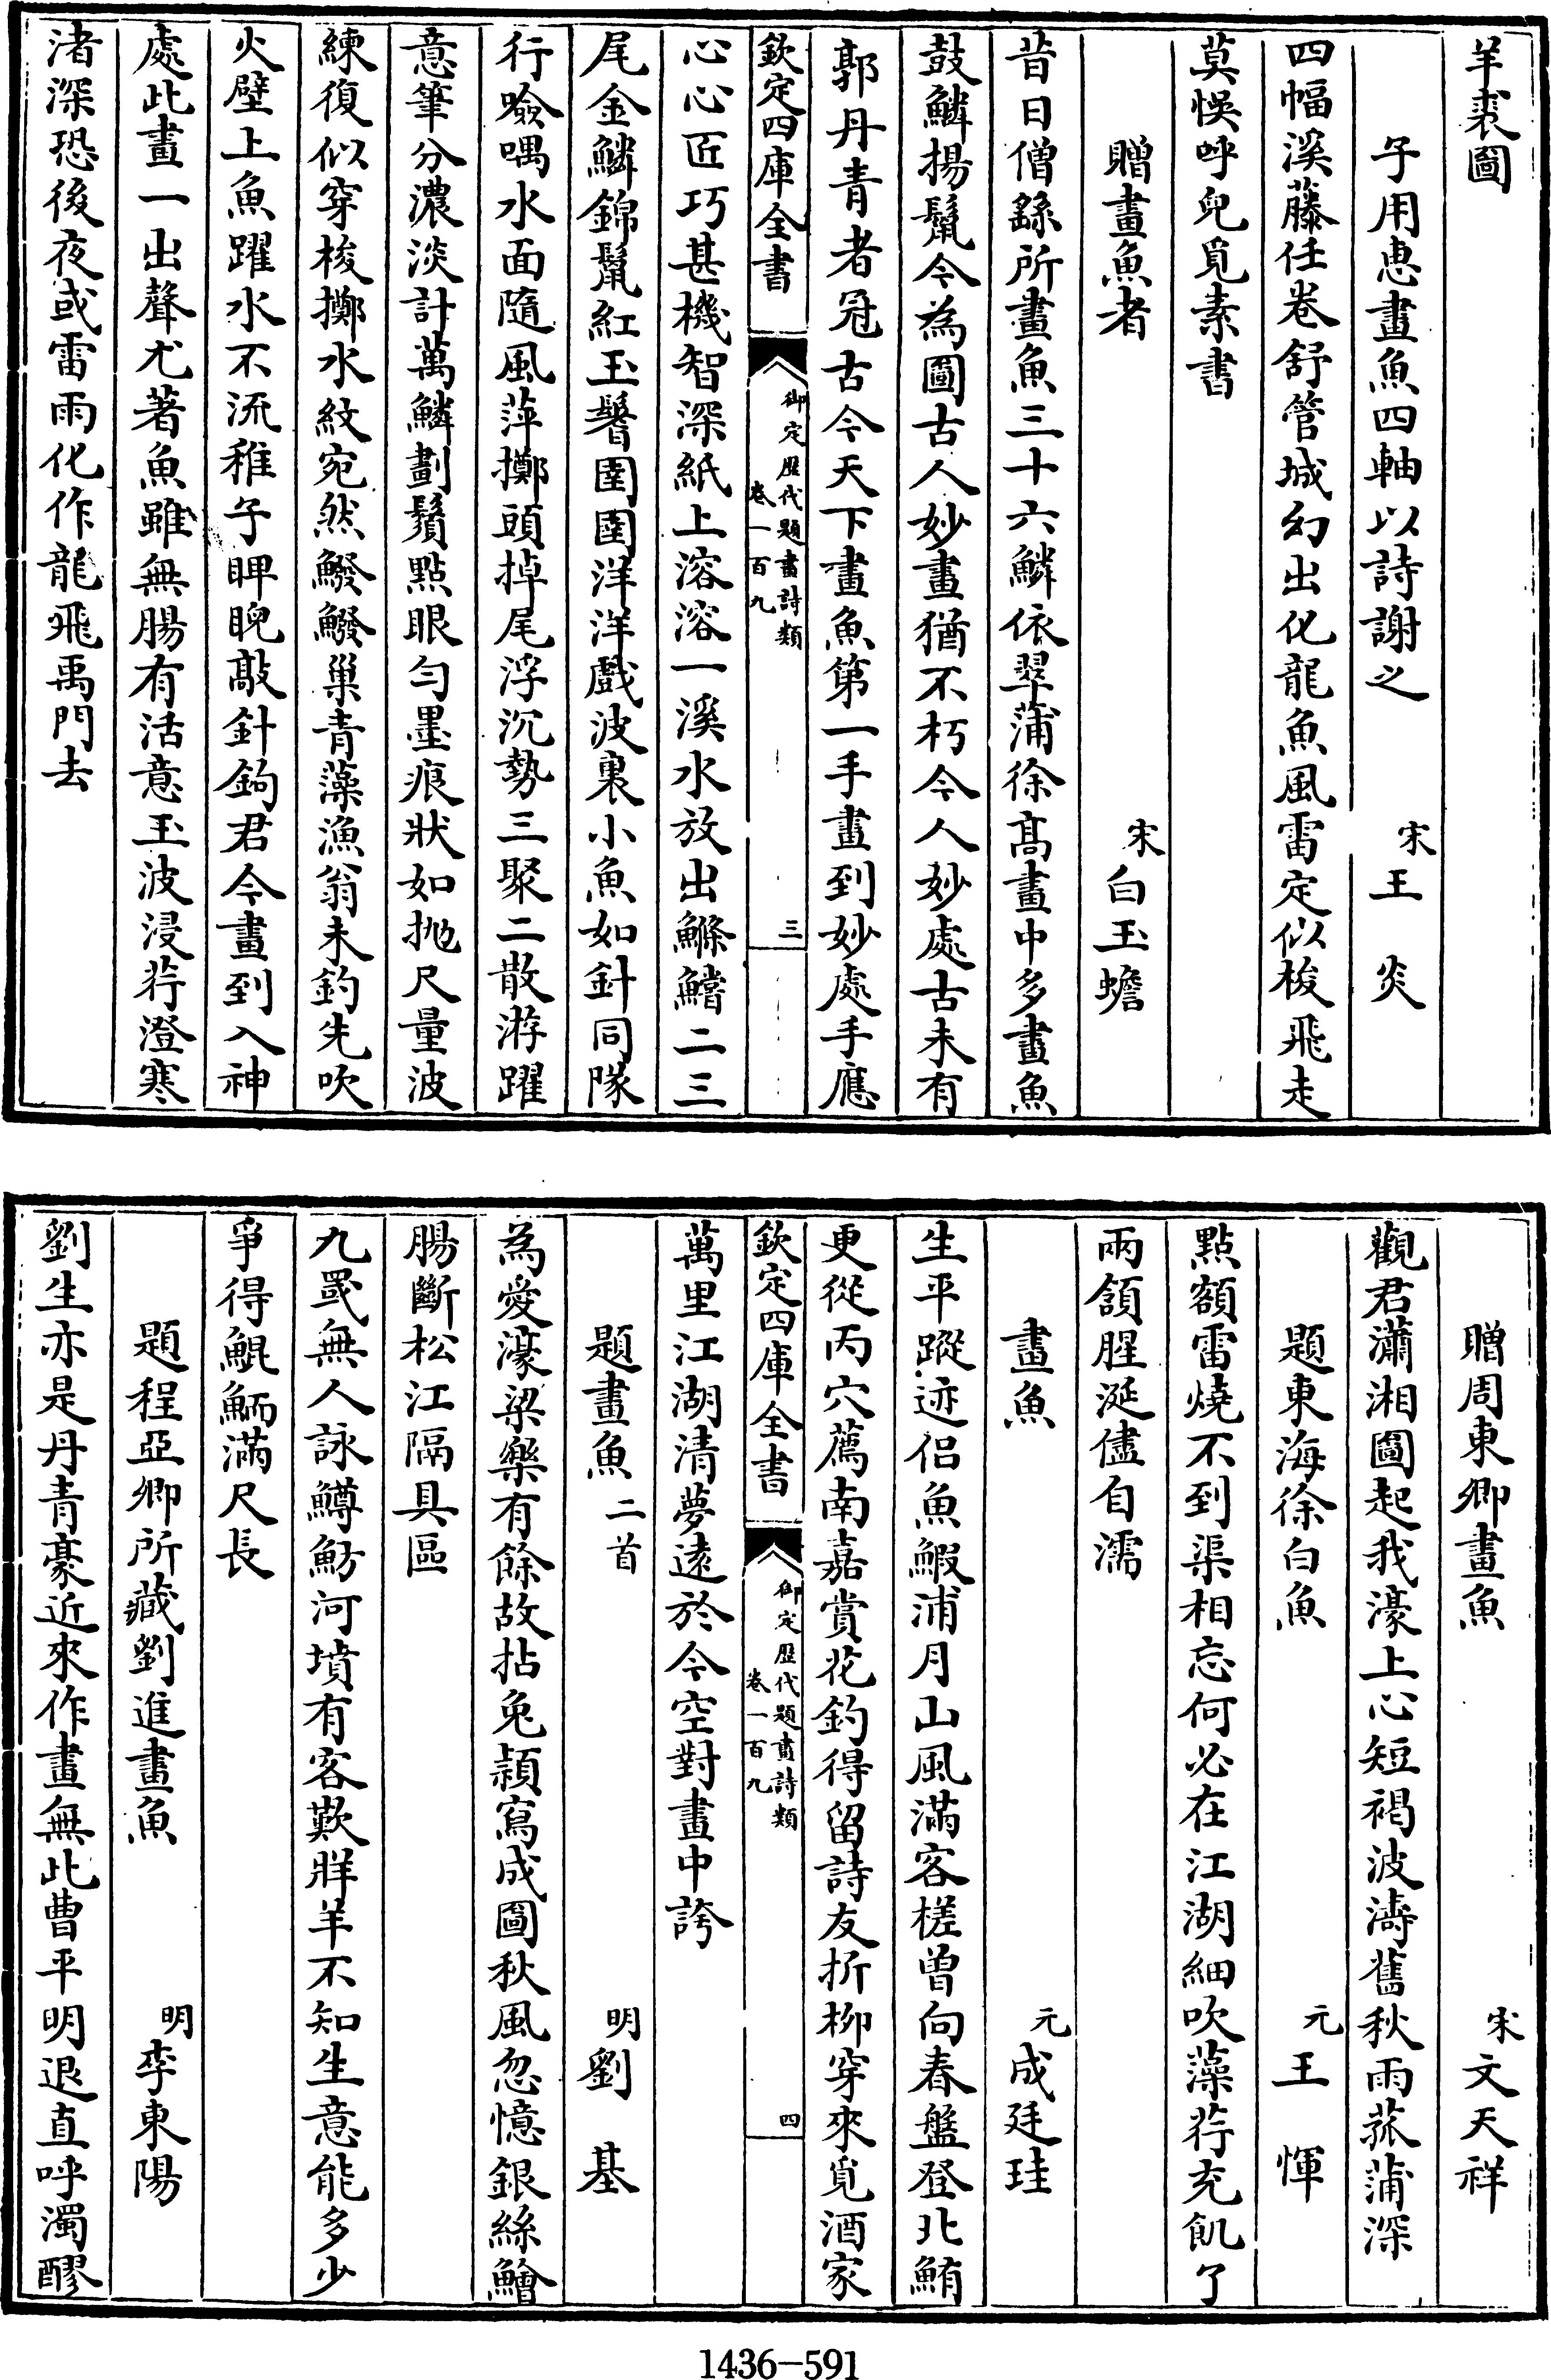 羊裘圖
子用惠畫魚四軸以詩謝之 宋王炎
四幅溪藤任卷舒管城幻出化龍魚風雷定似梭飛走
莫悞呼兒覓素書
贈畫魚者 宋白玉蟾
昔日僧繇所畫魚三十六鱗依翠蒲徐髙畫中多畫魚
鼓鱗揚鬛今為圖古人妙畫猶不朽今人妙處古未有
郭丹青者冠古今天下畫魚第一手畫到妙處手應
欽定四庫全書 御定歴代題畫詩類 卷一百九 三
心心匠巧甚機智深紙上溶溶一溪水放出鰷鱨二三
尾金鱗錦鬛紅玉鬐圉圉洋洋戲波裏小魚如針同隊
行噞喁水面隨風萍擲頭掉尾浮沉勢三聚二散游躍
意筆分濃淡計萬鱗劃鬚點眼勻墨痕狀如抛尺量波
練復似穿梭擲水紋宛然鱍鱍巢青藻漁翁未釣先吹
火壁上魚躍水不流稚子睥睨敲針鉤君今畫到入神
處此畫一出聲尤著魚雖無腸有活意玉波浸荇澄寒
渚深恐後夜或雷雨化作龍飛禹門去
贈周東卿畫魚 宋文天祥
觀君瀟湘圖起我濠上心短褐波濤舊秋雨菰蒲深
題東海徐白魚 元王惲
點額雷燒不到渠相忘何必在江湖細吹藻荇充飢了
兩頷腥涎儘自濡
畫魚 元成廷珪
生平蹤迹侶魚鰕浦月山風滿客槎曽向春盤登北鮪
更從丙穴薦南嘉賞花釣得留詩友折柳穿來覓酒家
欽定四庫全書 御定歴代題畫詩類 卷一百九 四
萬里江湖清夢遠於今空對畫中誇
題畫魚二首 明劉基
為愛濠梁樂有餘故拈兔頴寫成圖秋風忽憶銀絲鱠
腸斷松江隔具區
九罭無人詠鱒魴河墳有客歎牂羊不知生意能多少
爭得鯤鮞滿尺長
題程亞卿所藏劉進畫魚 明李東陽
劉生亦是丹青豪近來作畫無此曹平明退直呼濁醪
1436-591